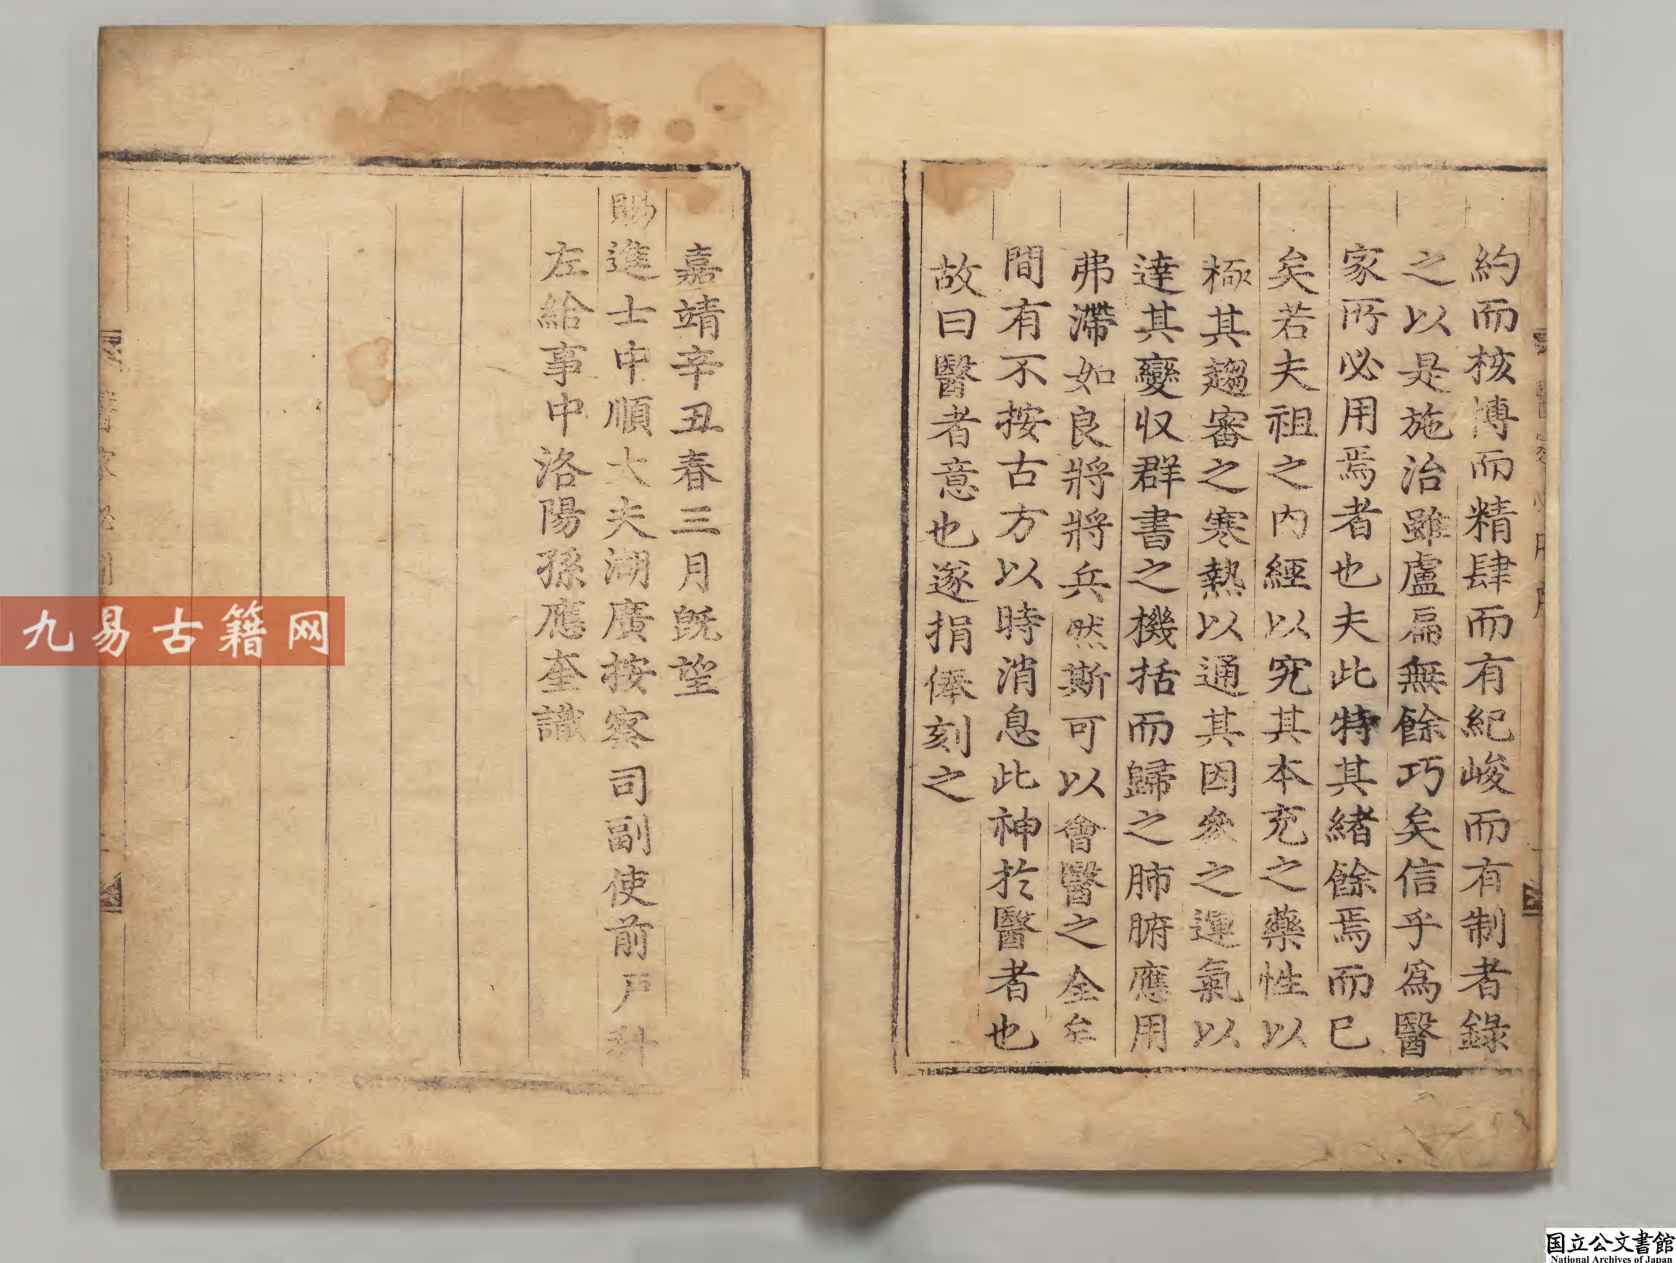 約而核博而精肆而有紀峻而有制者錄
之以是施治雖盧扁無餘巧矣信乎爲醫
家所必用焉者也夫此特其緒餘焉而已
矣若夫祖之内經以究其本充之藥性以
極其趨審之寒熱以通其因參之運氣以
達其變収群書之機括而歸之肺腑應用
弗滯如良將將兵然斯可以會醫之全矣
間有不按古方以時消息此神於醫者也
故曰醫者意也遂捐俸刻之
嘉靖辛丑春三月旣望
賜進士中順大夫湖廣按察司副使前戸科
左給事中洛陽孫應奎識
九易古籍网
国立公文書館
National Archives of Japan